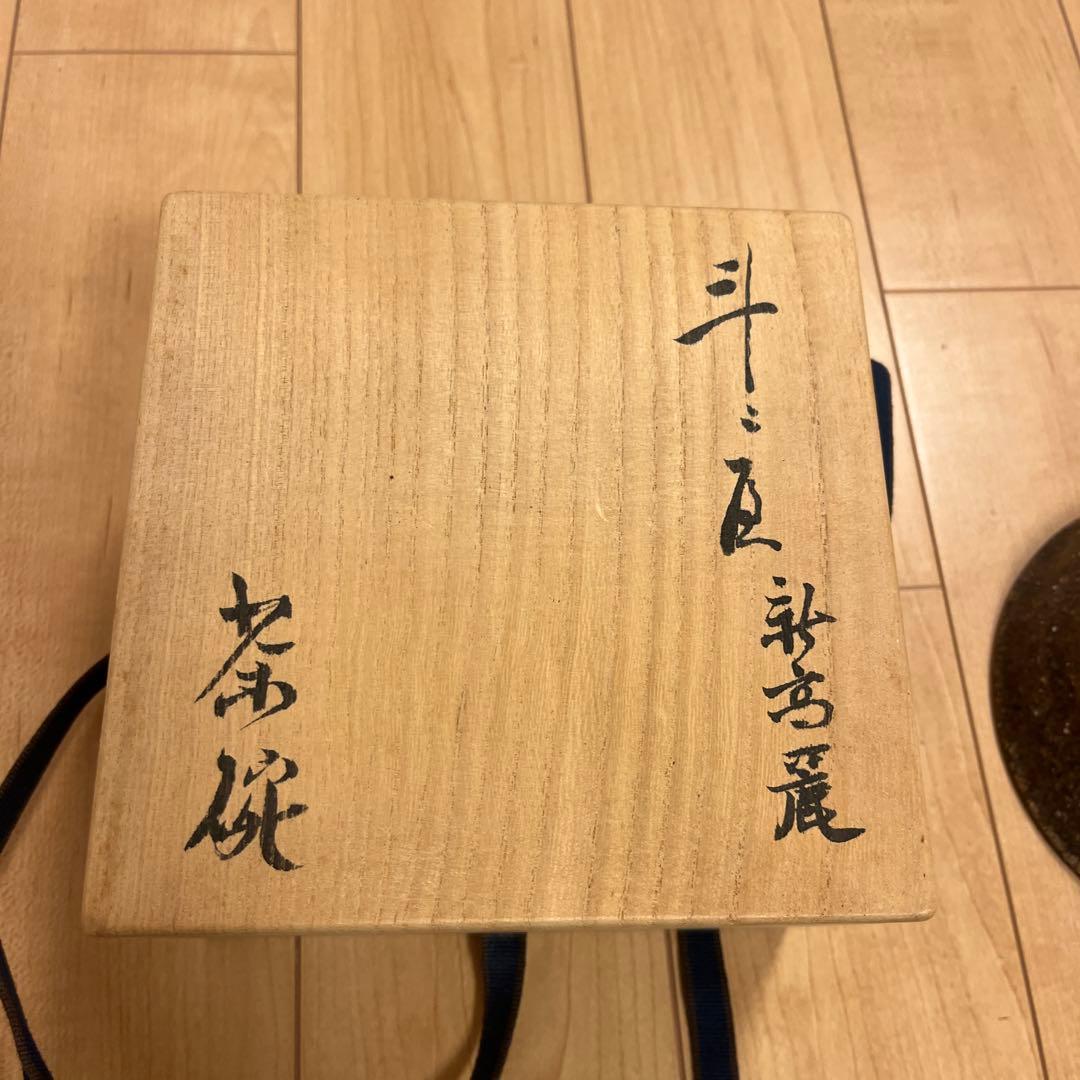 斗々屋
新高麗
茶碗